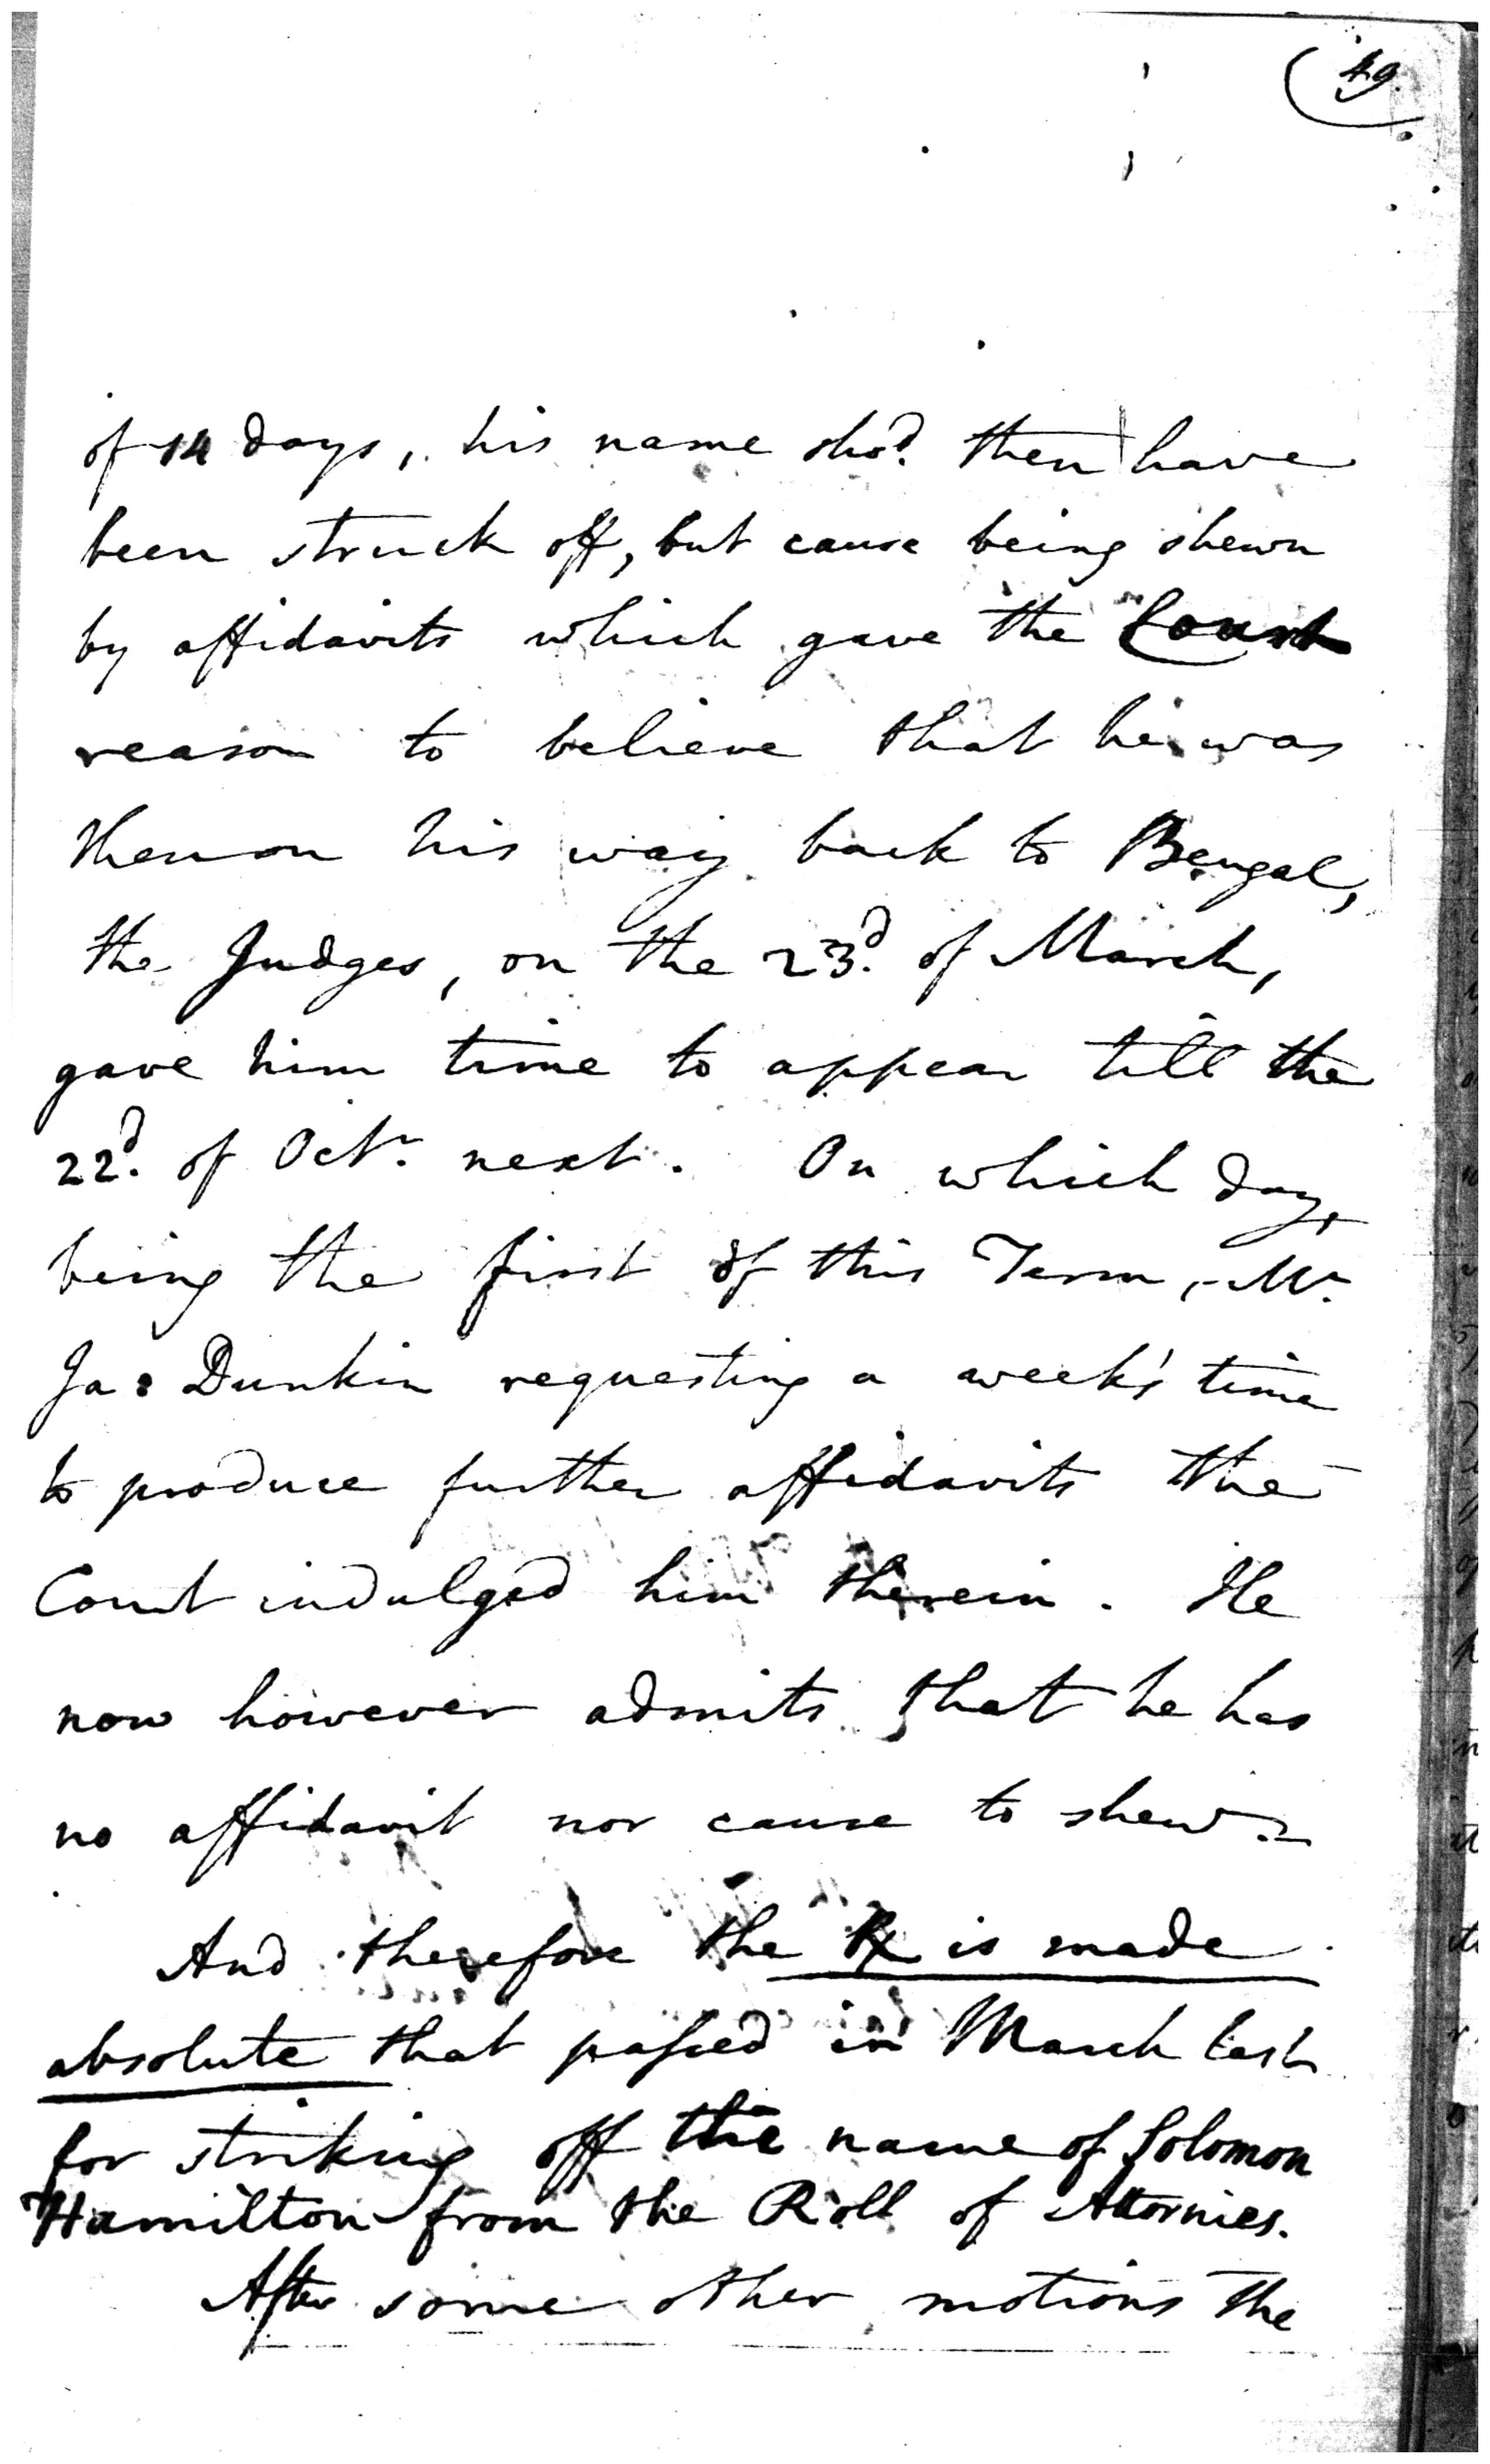 49.
of 14 days, his name shod. then have
been struck off, but cause being shewn
by affidavits which gave the Court
reason to believe that he was
then on his way back to Bengal,
the Judges, on the 23d. of March,
gave him time to appear till the
22d. of Octr. next. On which day,
being the first of this Term, Mr.
Ja: Dunkin requesting a week's time
to produce further affidavits the
Court indulged him therein. He
now however admits that he has
no affidavit nor cause to shew.
And therefore the Rx is made
absolute that passed in March last
for striking off the name of Solomon
Hamilton from the Roll of Attornies.
After some other motions the